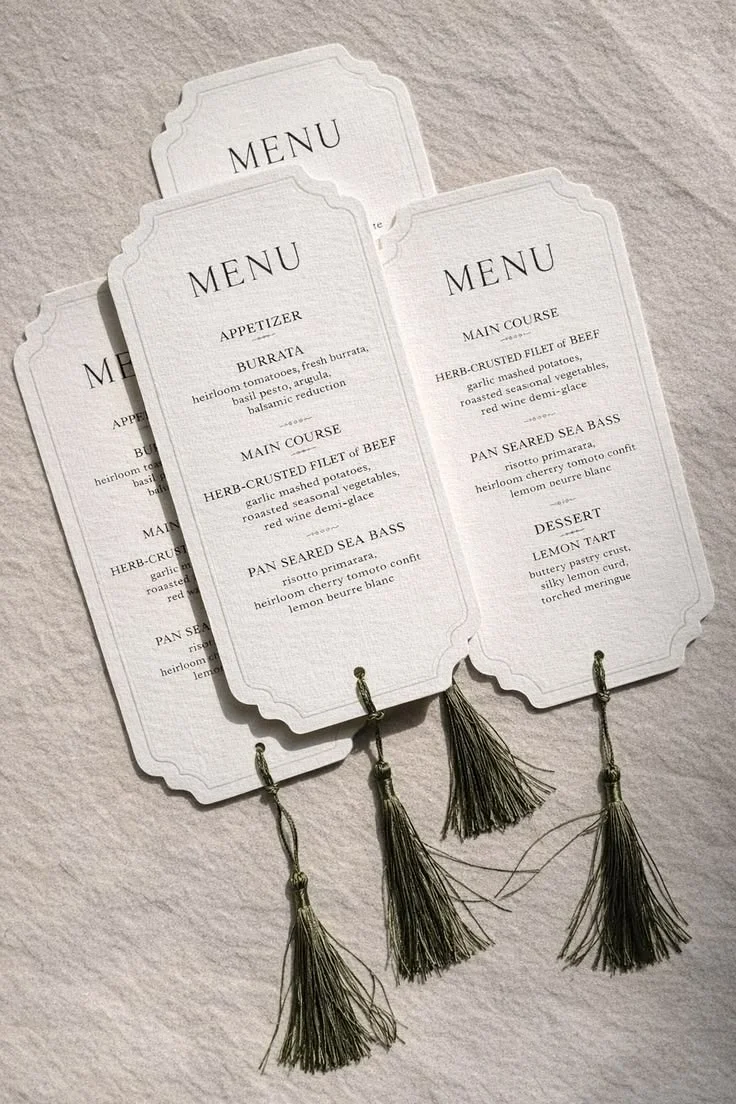 MENU
te
MENU
APPETIZER
BURRATA
heirloom tomatooes, fresh burrata,
basil pesto, arugula,
balsamic reduction
MAIN COURSE
HERB-CRUSTED FILET of BEEF
garlic mashed potatoes,
roaasted seasonal vegetables,
red wine demi-glace
PAN SEARED SEA BASS
risotto primarara,
heirloom cherry tomato confit
lemon beurre blanc
MENU
MAIN COURSE
HERB-CRUSTED FILET of BEEF
garlic mashed potatoes,
roaasted seasonal vegetables,
red wine demi-glace
PAN SEARED SEA BASS
risotto primarara,
heirloom cherry tomato confit
lemom neurre blanc
DESSERT
LEMON TART
buttery pastry crust,
silky lemon curd,
torched meringue
ME
APPE
BU
heirloom toma
basil p
bal
MAIN
HERB-CRUST
garlic m
roaasted
red w
PAN SEA
risot
heirloom c
lemo